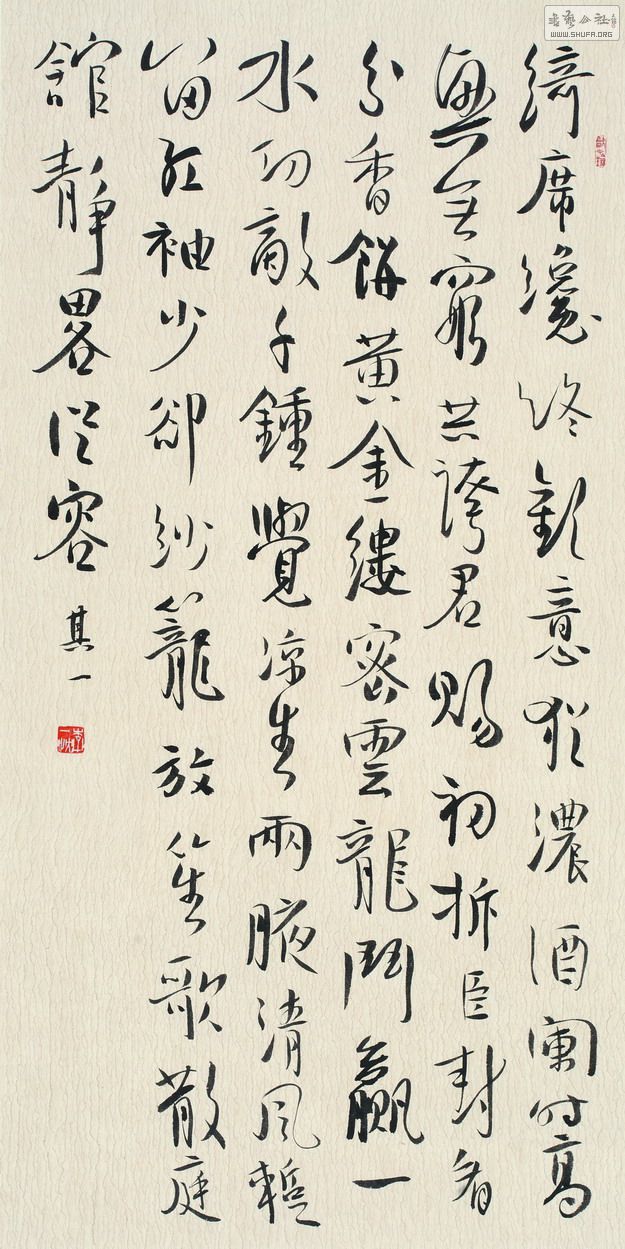 綺席纔終歡意猶濃酒闌時高
興無窮共誇君賜初拆臣封看
分香餅黃金縷密雲龍鬥贏一
水功敵千鍾覺涼生兩腋清風暫
留紅袖少卻紗籠放笙歌散庭
舘靜畧從容
其一
書藝公社
WWW.SHUFA.ORG